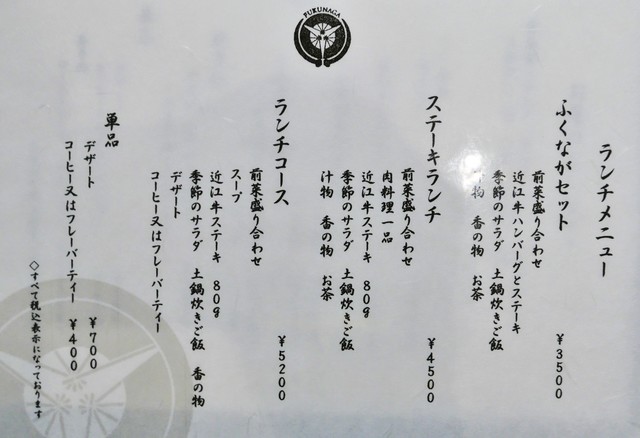 FUKUNAGA
ランチメニュー
ふくながセット ¥3500
前菜盛り合わせ
近江牛ハンバーグとステーキ
季節のサラダ 土鍋炊きご飯
物 香の物 お茶
ステーキランチ ¥4500
前菜盛り合わせ
肉料理一品
近江牛ステーキ 80g
季節のサラダ 土鍋炊きご飯
汁物 香の物 お茶
ランチコース ¥5200
前菜盛り合わせ
スープ
近江牛ステーキ 80g
季節のサラダ 土鍋炊きご飯 香の物
デザート
コーヒー又はフレーバーティー
単品
デザート ¥700
コーヒー又はフレーバーティー ¥400
◇すべて税込表示になっております